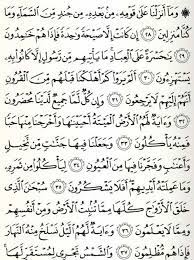 ۞ وَمَآ أَنزَلْنَا عَلَىٰ قَوْمِهِۦ مِنۢ بَعْدِهِۦ مِن جُندٍ مِّنَ ٱلسَّمَآءِ وَمَا
كُنَّا مُنزِلِينَ ٢٨ إِن كَانَتْ إِلَّا صَيْحَةً وَٰحِدَةً فَإِذَا هُمْ خَٰمِدُونَ
٢٩ يَٰحَسْرَةً عَلَى ٱلْعِبَادِ مَا يَأْتِيهِم مِّن رَّسُولٍ إِلَّا كَانُوا۟ بِهِۦ
يَسْتَهْزِءُونَ ٣٠ أَلَمْ يَرَوْا۟ كَمْ أَهْلَكْنَا قَبْلَهُم مِّنَ ٱلْقُرُونِ
أَنَّهُمْ إِلَيْهِمْ لَا يَرْجِعُونَ ٣١ وَإِن كُلٌّ لَّمَّا جَمِيعٌ لَّدَيْنَا مُحْضَرُونَ
٣٢ وَءَايَةٌ لَّهُمُ ٱلْأَرْضُ ٱلْمَيْتَةُ أَحْيَيْنَٰهَا وَأَخْرَجْنَا مِنْهَا حَبًّا
فَمِنْهُ يَأْكُلُونَ ٣٣ وَجَعَلْنَا فِيهَا جَنَّٰتٍ مِّن نَّخِيلٍ
وَأَعْنَٰبٍ وَفَجَّرْنَا فِيهَا مِنَ ٱلْعُيُونِ ٣٤ لِيَأْكُلُوا۟ مِن ثَمَرِهِۦ
وَمَا عَمِلَتْهُ أَيْدِيهِمْ أَفَلَا يَشْكُرُونَ ٣٥ سُبْحَٰنَ ٱلَّذِى
خَلَقَ ٱلْأَزْوَٰجَ كُلَّهَا مِمَّا تُنۢبِتُ ٱلْأَرْضُ وَمِنْ أَنفُسِهِمْ
وَمِمَّا لَا يَعْلَمُونَ ٣٦ وَءَايَةٌ لَّهُمُ ٱلَّيْلُ نَسْلَخُ مِنْهُ ٱلنَّهَارَ
فَإِذَا هُم مُّظْلِمُونَ ٣٧ وَٱلشَّمْسُ تَجْرِى لِمُسْتَقَرٍّ لَّهَا